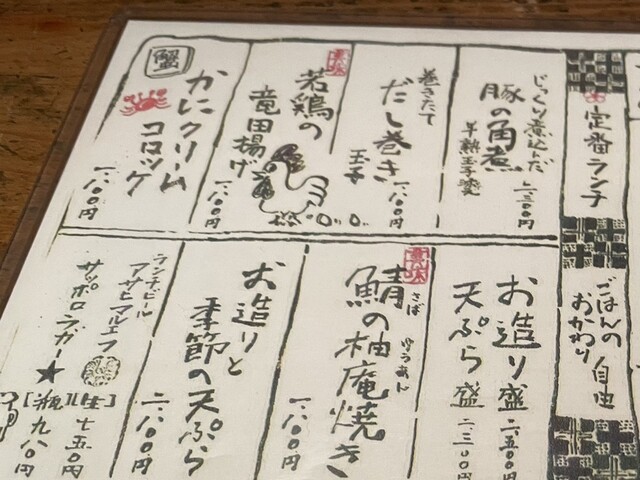 定番ランチ
ごはんの
おかわり
自由
じっくり煮込んだ
豚の角煮
半熟玉子添
二、三〇〇円
巻きたて
だし巻き
玉子
一、八〇〇円
若鶏の
竜田揚げ
一、八〇〇円
蟹
かにクリーム
コロッケ
一、八〇〇円
お造り盛
二、五〇〇円
天ぷら盛
二、三〇〇円
鯖の柚庵焼き
さば
ゆうあん
一、八〇〇円
お造りと
季節の天ぷら
二、八〇〇円
ランチビール
アサヒマルエフ
[生]七五〇円
サッポロラガー★
[瓶]九八〇円